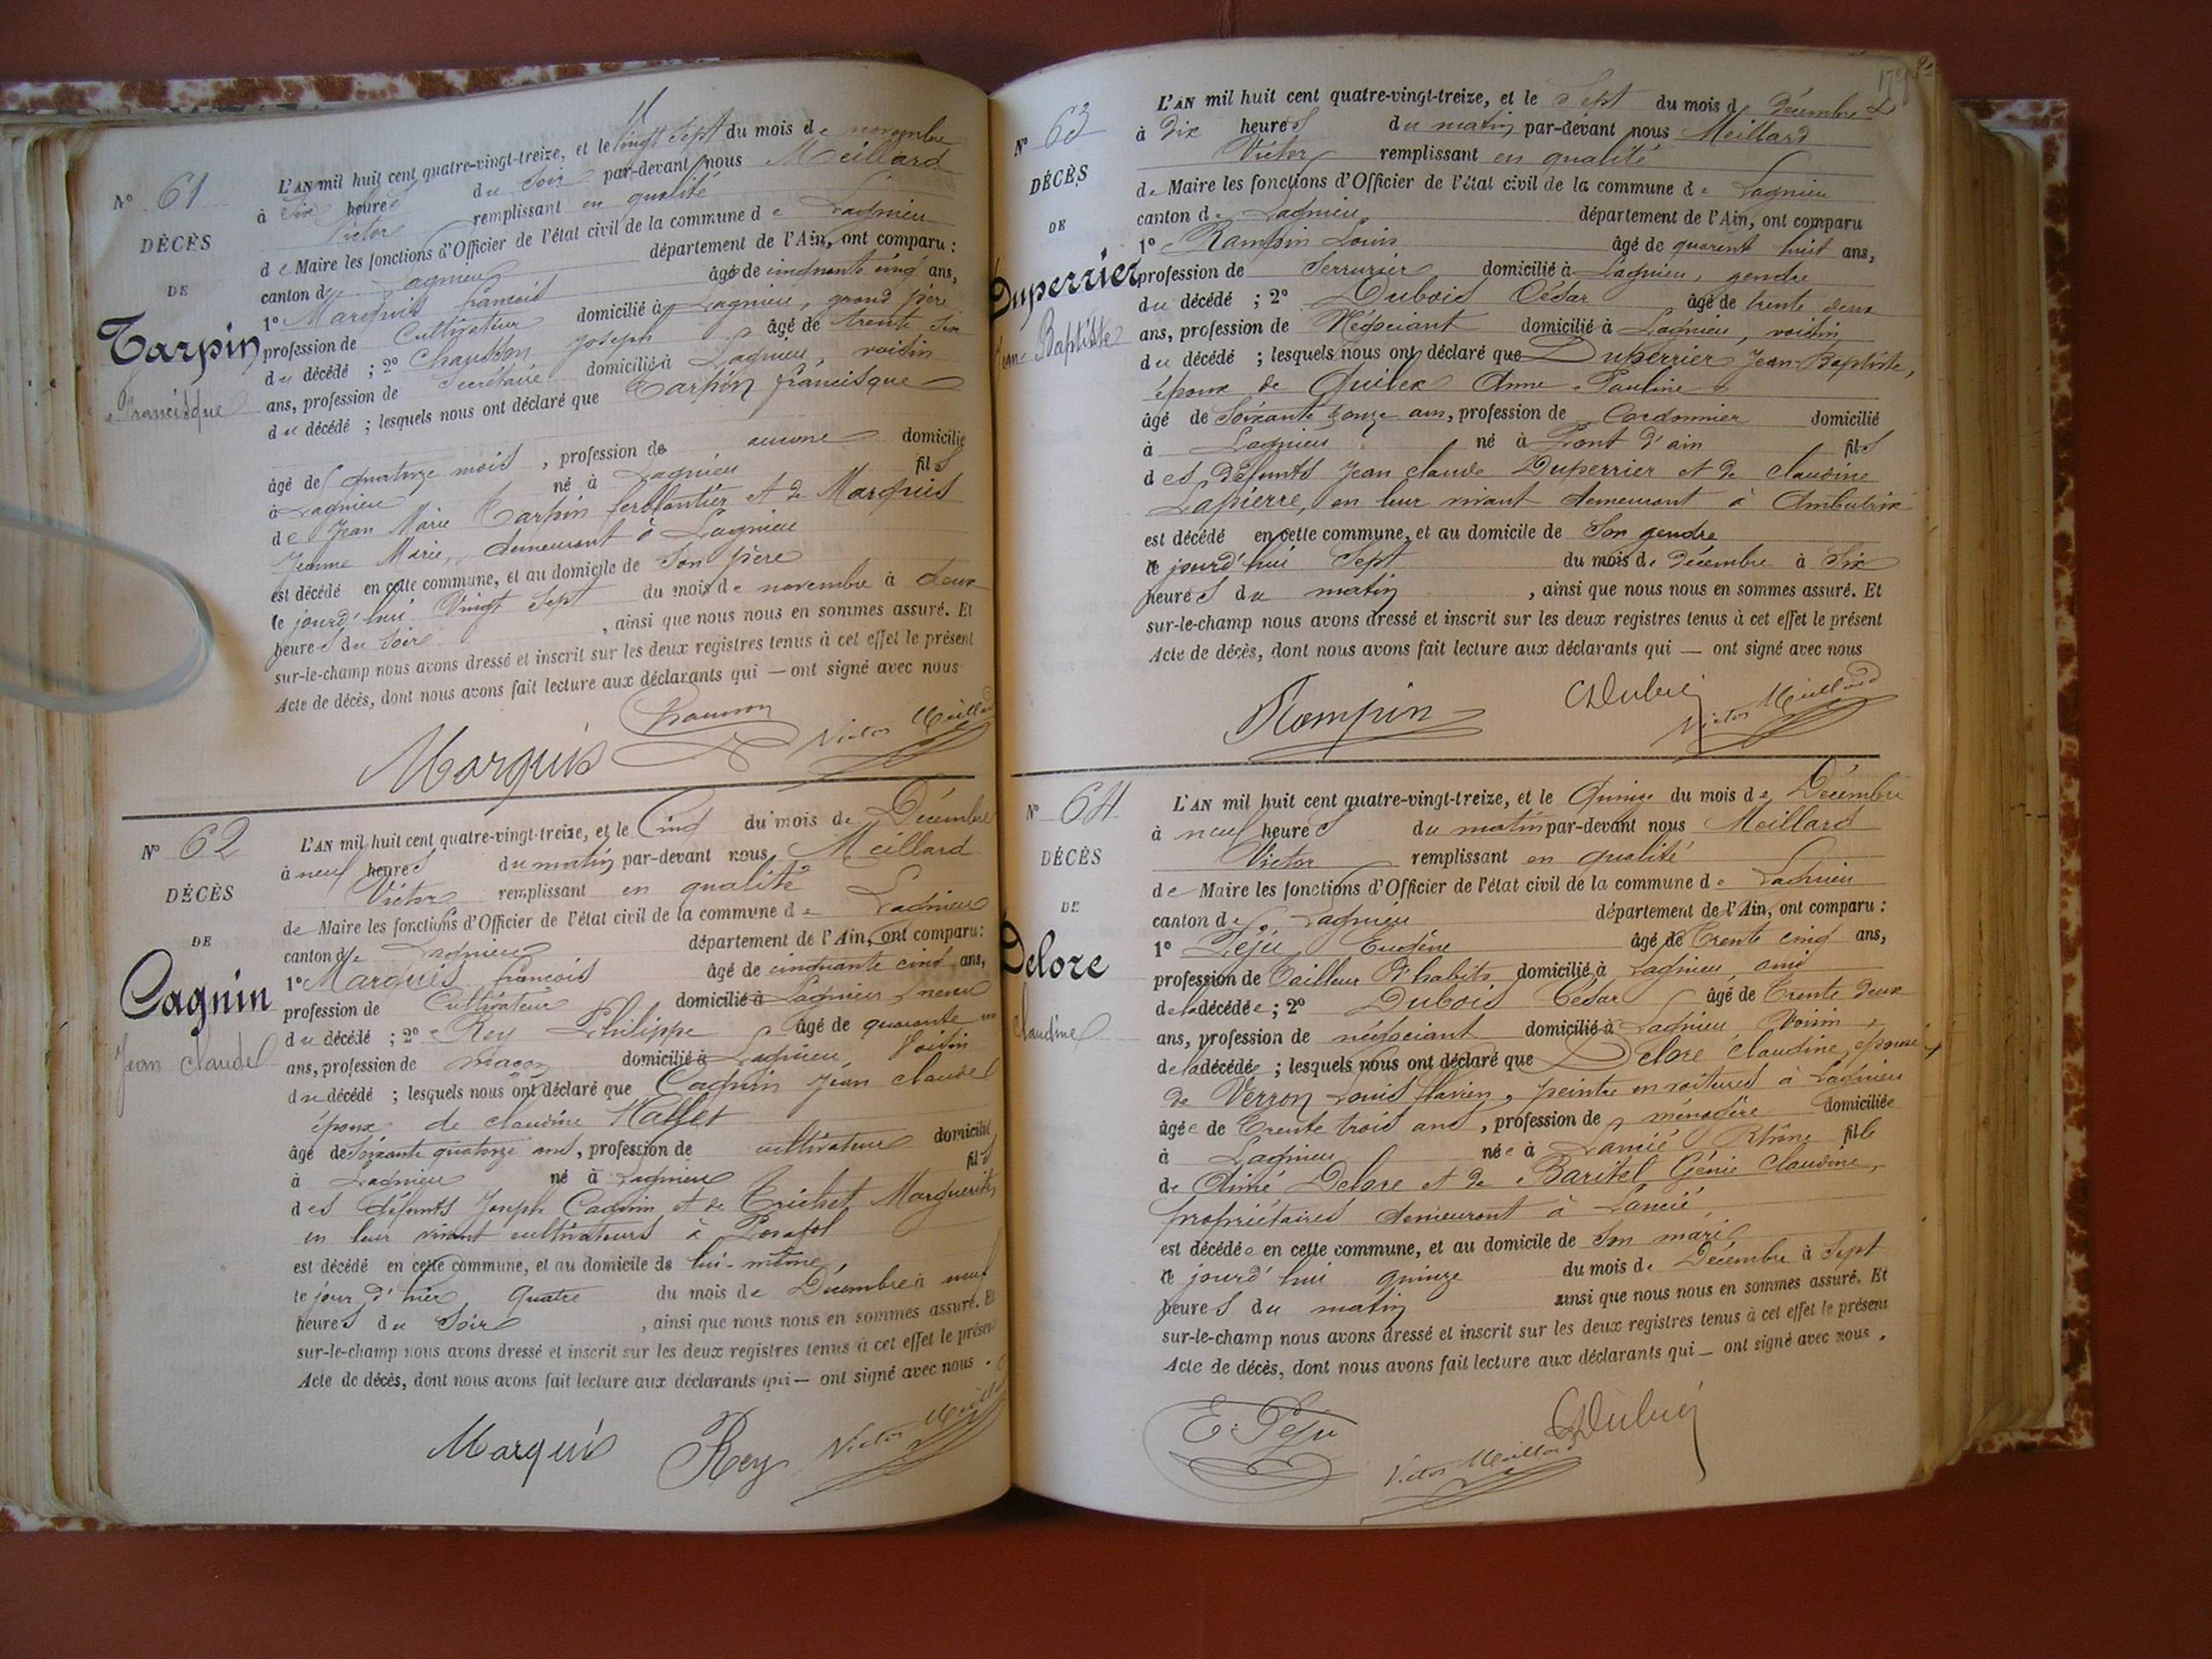 N° 61
DÉCÈS
DE
Tarpin
Francisque
L'AN mil huit cent quatre-vingt-treize, et le vingt sept du mois de novembre
à Six heures du Soir par-devant nous Meillard
Victor remplissant en qualité
de Maire les fonctions d'Officier de l'état civil de la commune de Lagnieu
canton de Lagnieu département de l'Ain, ont comparu :
1° Marquis françois âgé de cinquante cinq ans,
profession de Cultivateur domicilié à Lagnieu, grand père
du décédé ; 2° Chausson Joseph âgé de trente six
ans, profession de Secrétaire domicilié à Lagnieu, voisin
du décédé ; lesquels nous ont déclaré que Tarpin francisque
âgé de quatorze mois, profession de aucune domicilié
à Lagnieu né à Lagnieu fils
de Jean Marie Tarpin ferblantier et de Marquis
Jeanne Marie, demeurant à Lagnieu
est décédé en cette commune, et au domicile de Son père
le jourd'hui Vingt Sept du mois de novembre à deux
heures du Soir , ainsi que nous nous en sommes assuré. Et
sur-le-champ nous avons dressé et inscrit sur les deux registres tenus à cet effet le présent
Acte de décès, dont nous avons fait lecture aux déclarants qui — ont signé avec nous
Marquis Chausson Victor Meillard
N° 62
DÉCÈS
DE
Cagnin
Jean Claude
L'AN mil huit cent quatre-vingt-treize, et le Cinq du mois de Décembre
à neuf heures du matin par-devant nous Meillard
Victor remplissant en qualité
de Maire les fonctions d'Officier de l'état civil de la commune de Lagnieu
canton de Lagnieu département de l'Ain, ont comparu :
1° Marquis françois âgé de cinquante cinq ans,
profession de Cultivateur domicilié à Lagnieu neveu
du décédé ; 2° Rey Philippe âgé de quarante un
ans, profession de maçon domicilié à Lagnieu, Voisin
du décédé ; lesquels nous ont déclaré que Cagnin Jean claude
époux de claudine Hallet
âgé de Soixante quatorze ans, profession de cultivateur domicilié
à Lagnieu né à Lagnieu fils
des défunts Joseph Cagnin et de Trichet Marguerite
en leur vivant cultivateurs à Posafol
est décédé en cette commune, et au domicile de lui-même
le jour d'hier Quatre du mois de Décembre à neuf
heures du Soir , ainsi que nous nous en sommes assuré. Et
sur-le-champ nous avons dressé et inscrit sur les deux registres tenus à cet effet le présent
Acte de décès, dont nous avons fait lecture aux déclarants qui — ont signé avec nous .
Marquis Rey Victor Meillard
N° 63
DÉCÈS
DE
Duperrier
Jean Baptiste
L'AN mil huit cent quatre-vingt-treize, et le Sept du mois de Décembre
à Dix heures du matin par-devant nous Meillard
Victor remplissant en qualité
de Maire les fonctions d'Officier de l'état civil de la commune de Lagnieu
canton de Lagnieu département de l'Ain, ont comparu
1° Rampin Louis âgé de quarent huit ans,
profession de Serrurier domicilié à Lagnieu, gendre
du décédé ; 2° Dubois César âgé de trente deux
ans, profession de Négociant domicilié à Lagnieu, voisin
du décédé ; lesquels nous ont déclaré que Duperrier Jean-Baptiste,
époux de Anne Pauline
âgé de Soixante ans, profession de Cordonnier domicilié
à Lagnieu né à Pont d'ain fils
des Défunts Jean claude Duperrier et de Claudine
Lapierre, en leur vivant demeurant à Ambutrix
est décédé en cette commune, et au domicile de Son gendre
le jourd'hui Sept du mois de Décembre à Six
heures du matin , ainsi que nous nous en sommes assuré. Et
sur-le-champ nous avons dressé et inscrit sur les deux registres tenus à cet effet le présent
Acte de décès, dont nous avons fait lecture aux déclarants qui — ont signé avec nous
Rampin CDubois Victor Meillard
N° 64
DÉCÈS
DE
Delore
Claudine
L'AN mil huit cent quatre-vingt-treize, et le Quinze du mois de Décembre
à neuf heures du matin par-devant nous Meillard
Victor remplissant en qualité
de Maire les fonctions d'Officier de l'état civil de la commune de Lagnieu
canton de Lagnieu département de l'Ain, ont comparu :
1° Péju Eugène âgé de Trente cinq ans,
profession de Tailleur d'habits domicilié à Lagnieu, ami
de la décédée ; 2° Dubois César âgé de Trente deux
ans, profession de négociant domicilié à Lagnieu, Voisin
de la décédée ; lesquels nous ont déclaré que Delore Claudine, épouse
de Verron Louis flavien, peintre en voitures à Lagnieu
âgée de Trente trois ans, profession de ménagère domiciliée
à Lagnieu née à Lancié Rhône fille
de Aimé Delore et de Baritel Génie Claudine,
propriétaires demeurant à Lancié,
est décédée en cette commune, et au domicile de Son mari
le jourd'hui quinze du mois de Décembre à Sept
heures du matin ainsi que nous nous en sommes assuré. Et
sur-le-champ nous avons dressé et inscrit sur les deux registres tenus à cet effet le présent
Acte de décès, dont nous avons fait lecture aux déclarants qui — ont signé avec nous .
E. Péju Victor Meillard CDubois